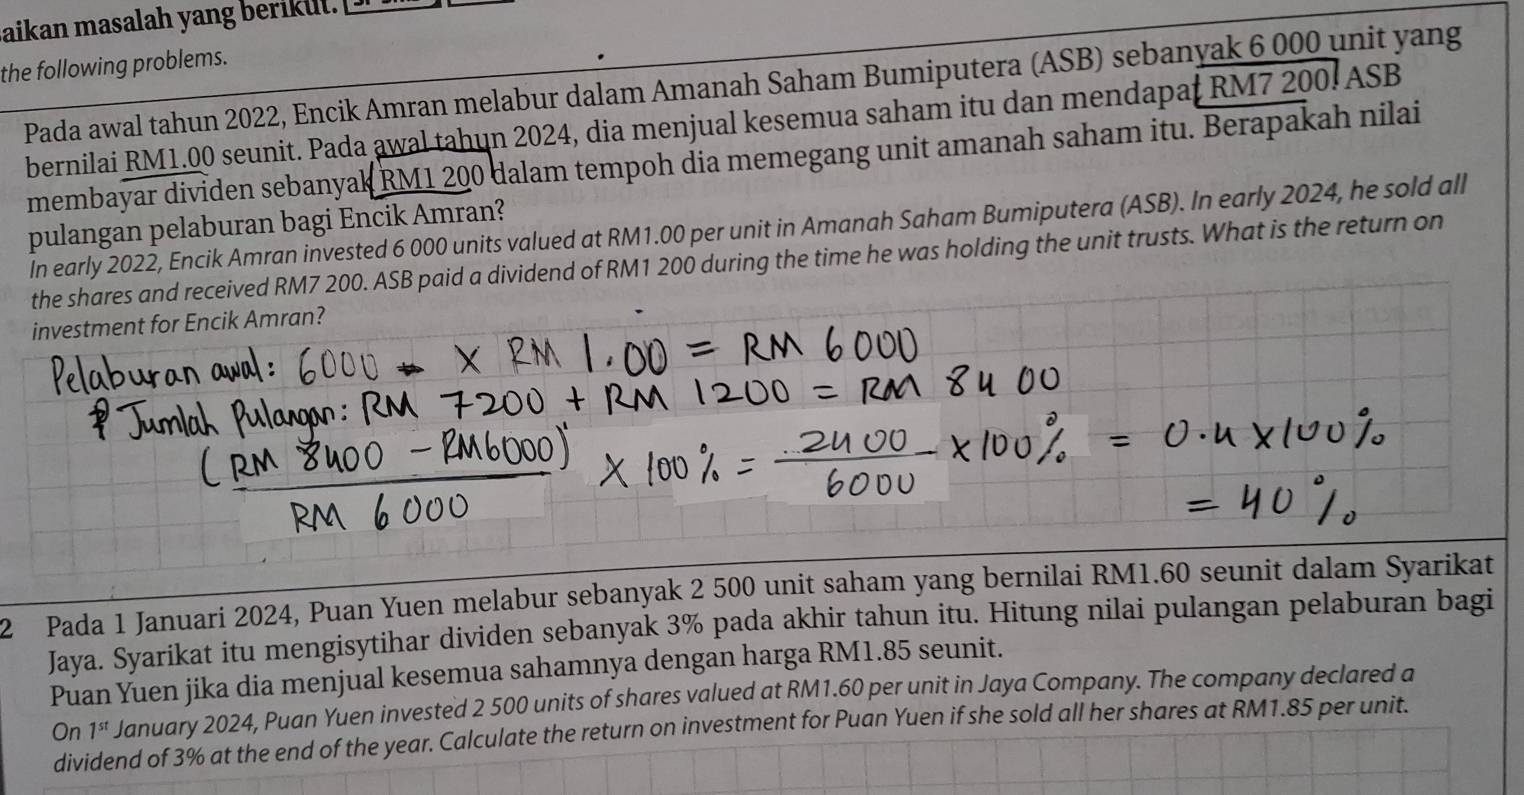 aikan masalah yang berikut.
the following problems.
Pada awal tahun 2022, Encik Amran melabur dalam Amanah Saham Bumiputera (ASB) sebanyak 6 000 unit yang
bernilai RM1.00 seunit. Pada awal tahun 2024, dia menjual kesemua saham itu dan mendapat RM7 200. ASB
membayar dividen sebanyak RM1 200 dalam tempoh dia memegang unit amanah saham itu. Berapakah nilai
pulangan pelaburan bagi Encik Amran?
In early 2022, Encik Amran invested 6 000 units valued at RM1.00 per unit in Amanah Saham Bumiputera (ASB). In early 2024, he sold all
the shares and received RM7 200. ASB paid a dividend of RM1 200 during the time he was holding the unit trusts. What is the return on
investment for Encik Amran?
Pelaburan awal: 6000 x RM 1.00 = RM 6000
Jumlah Pulangan: RM 7200 + RM 1200 = RM 8400
(RM 8400 - RM6000) x 100% = 2400 x 100% = 0.4 x 100%
RM 6000 6000
= 40%
2 Pada 1 Januari 2024, Puan Yuen melabur sebanyak 2 500 unit saham yang bernilai RM1.60 seunit dalam Syarikat
Jaya. Syarikat itu mengisytihar dividen sebanyak 3% pada akhir tahun itu. Hitung nilai pulangan pelaburan bagi
Puan Yuen jika dia menjual kesemua sahamnya dengan harga RM1.85 seunit.
On 1st January 2024, Puan Yuen invested 2 500 units of shares valued at RM1.60 per unit in Jaya Company. The company declared a
dividend of 3% at the end of the year. Calculate the return on investment for Puan Yuen if she sold all her shares at RM1.85 per unit.